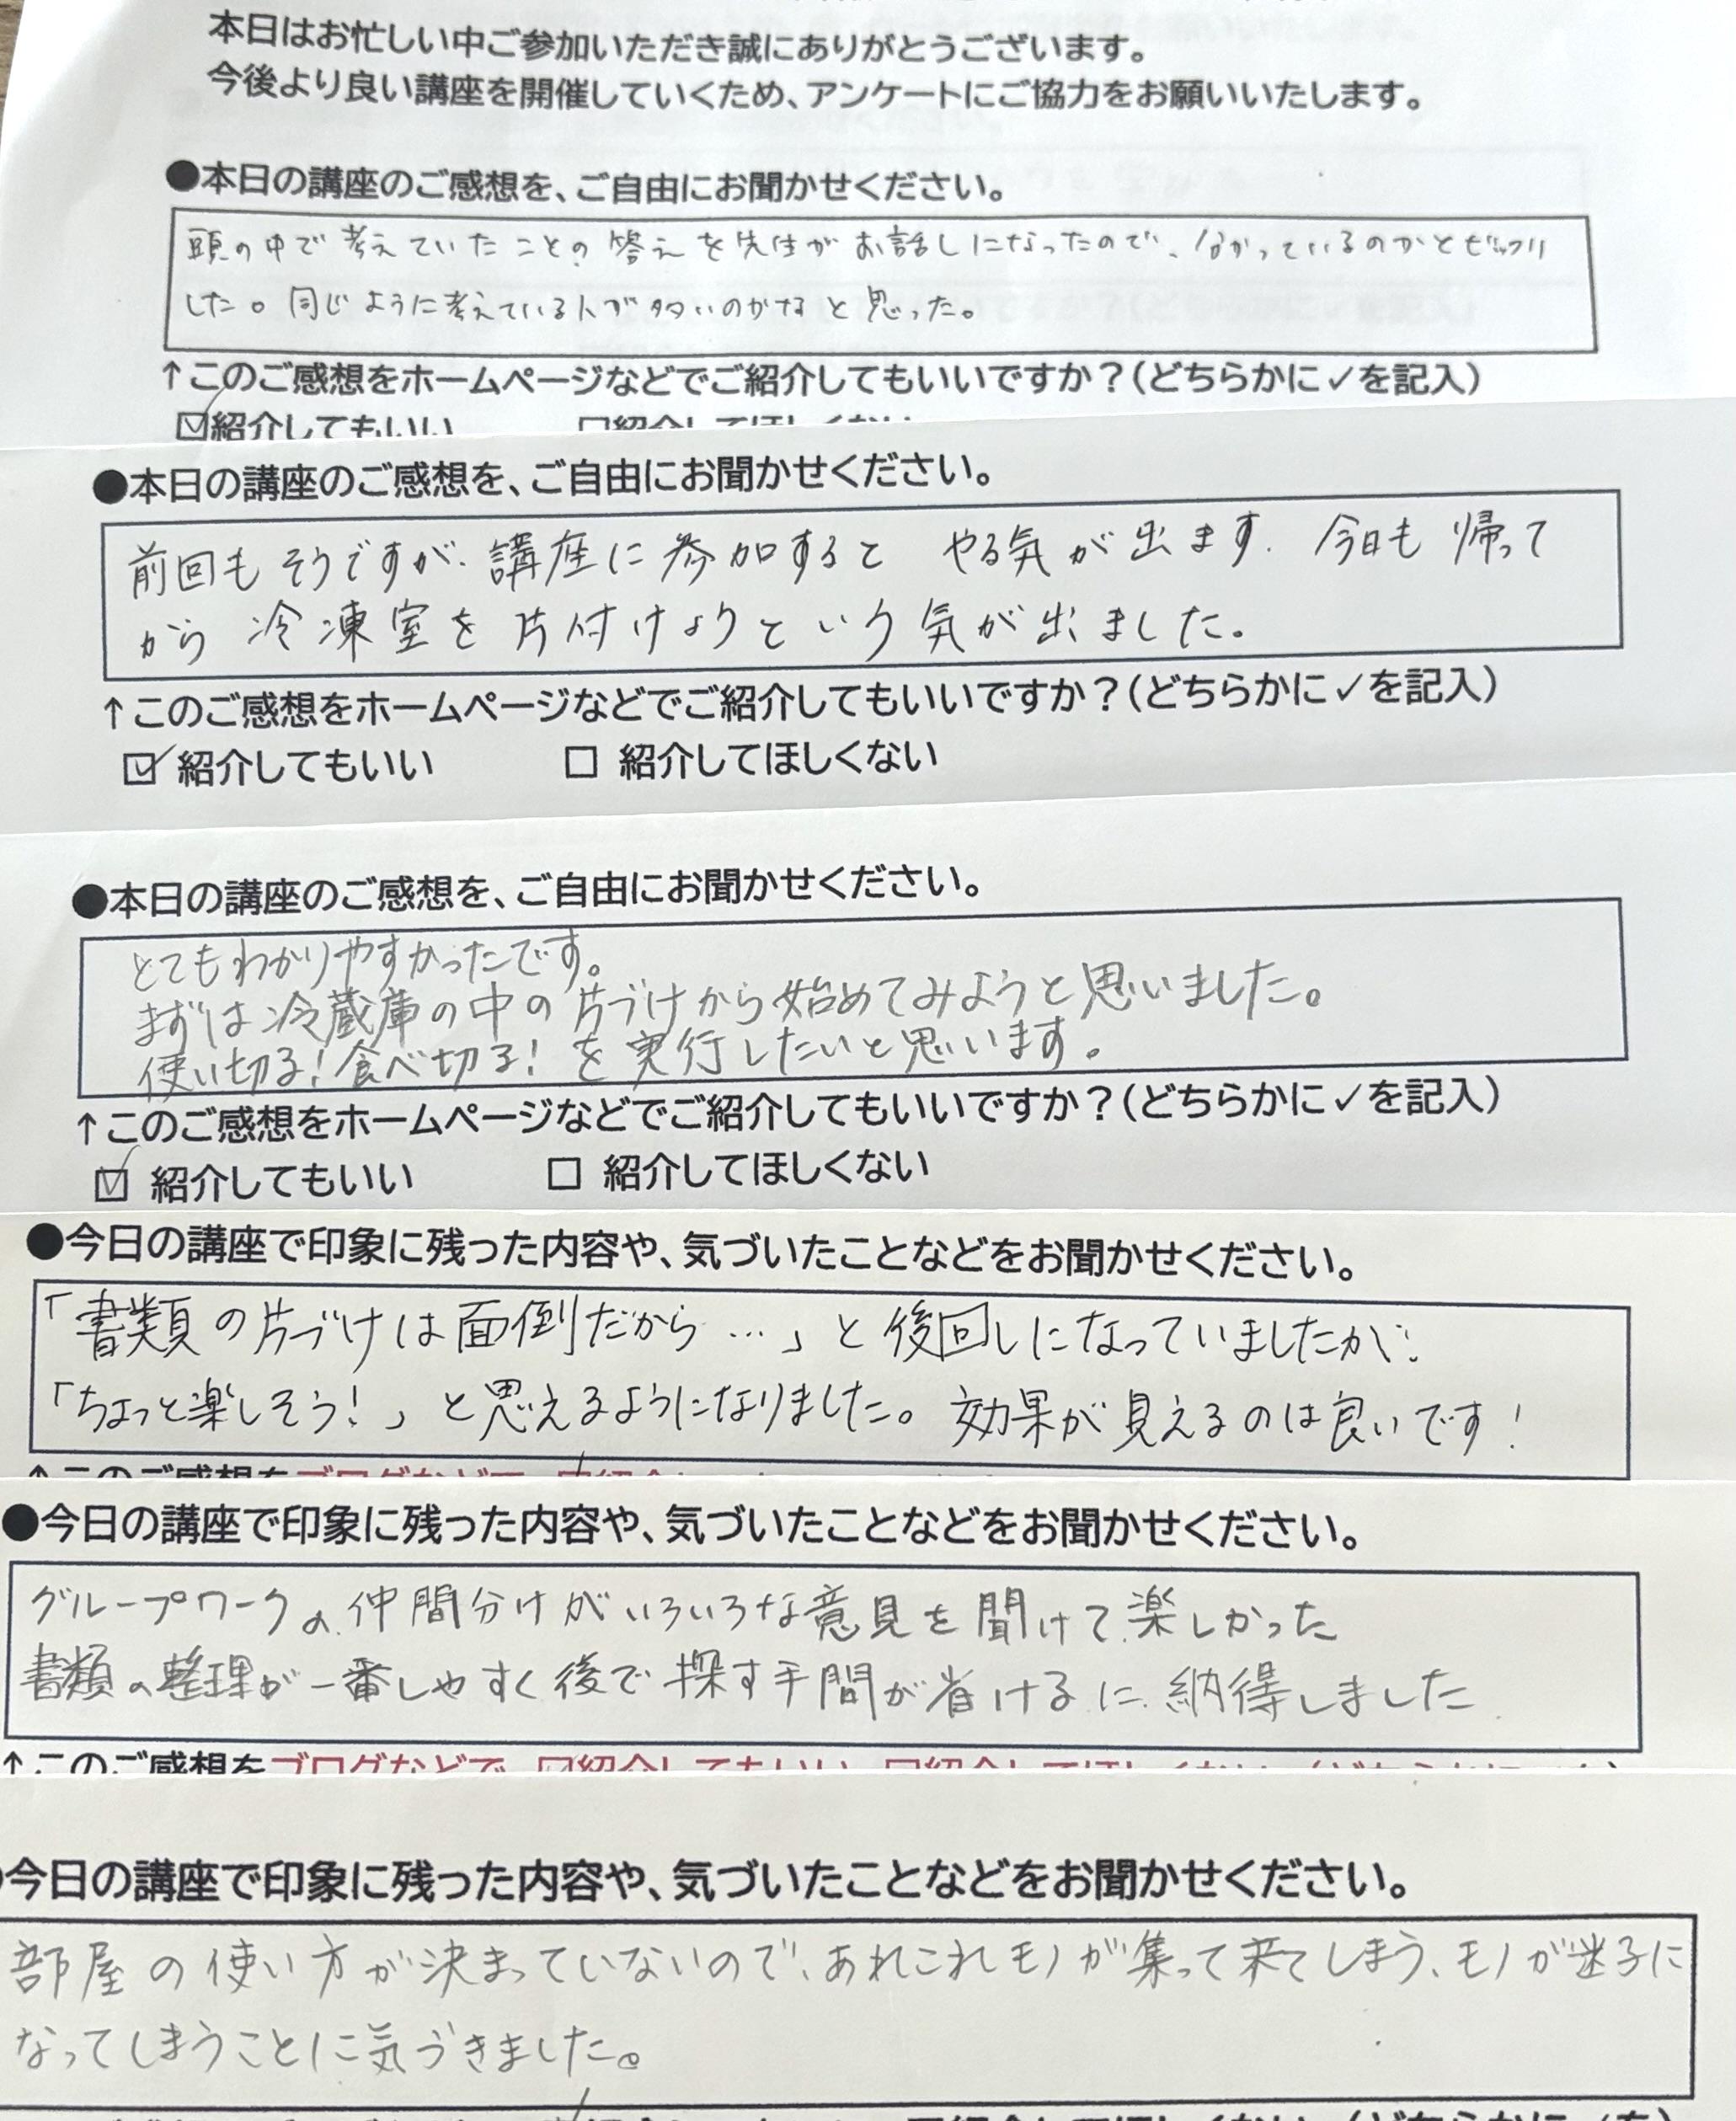 本日はお忙しい中ご参加いただき誠にありがとうございます。
今後より良い講座を開催していくため、アンケートにご協力をお願いいたします。
●本日の講座のご感想を、ご自由にお聞かせください。
頭の中で考えていたことの答えを先生がお話しになったので、分かっているのかとビックリ
した。同じように考えている人が多いのかなと思った。
↑このご感想をホームページなどでご紹介してもいいですか？(どちらかに✓を記入)
☑紹介してもいい □紹介してほしくない
●本日の講座のご感想を、ご自由にお聞かせください。
前回もそうですが、講座に参加すると やる気が出ます。今日も帰って
から 冷凍室を片付けようという気が出ました。
↑このご感想をホームページなどでご紹介してもいいですか？(どちらかに✓を記入)
☑ 紹介してもいい □ 紹介してほしくない
●本日の講座のご感想を、ご自由にお聞かせください。
とてもわかりやすかったです。
まずは冷蔵庫の中の片づけから始めてみようと思いました。
使い切る！食べ切る！を実行したいと思います。
↑このご感想をホームページなどでご紹介してもいいですか？(どちらかに✓を記入)
☑ 紹介してもいい □ 紹介してほしくない
●今日の講座で印象に残った内容や、気づいたことなどをお聞かせください。
「書類の片づけは面倒だから…」と後回しになっていましたが、
「ちょっと楽しそう！」と思えるようになりました。効果が見えるのは良いです！
↑このご感想をブログなどで、
●今日の講座で印象に残った内容や、気づいたことなどをお聞かせください。
グループワークの仲間分けがいろいろな意見を聞けて楽しかった
書類の整理が一番しやすく後で探す手間が省けるに納得しました
↑このご感想をブログなどで、☑紹介してもいい □紹介してほしくない
今日の講座で印象に残った内容や、気づいたことなどをお聞かせください。
部屋の使い方が決まっていないので、あれこれモノが集って来てしまう、モノが迷子に
なってしまうことに気づきました。